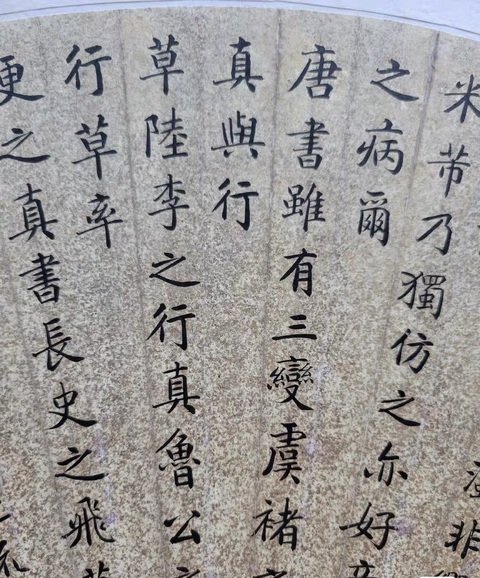 非
米芾乃獨仿之亦好
之病爾
唐書雖有三變虞褚
真與行
草陸李之行真魯公
行草率
更之真書長史之飛